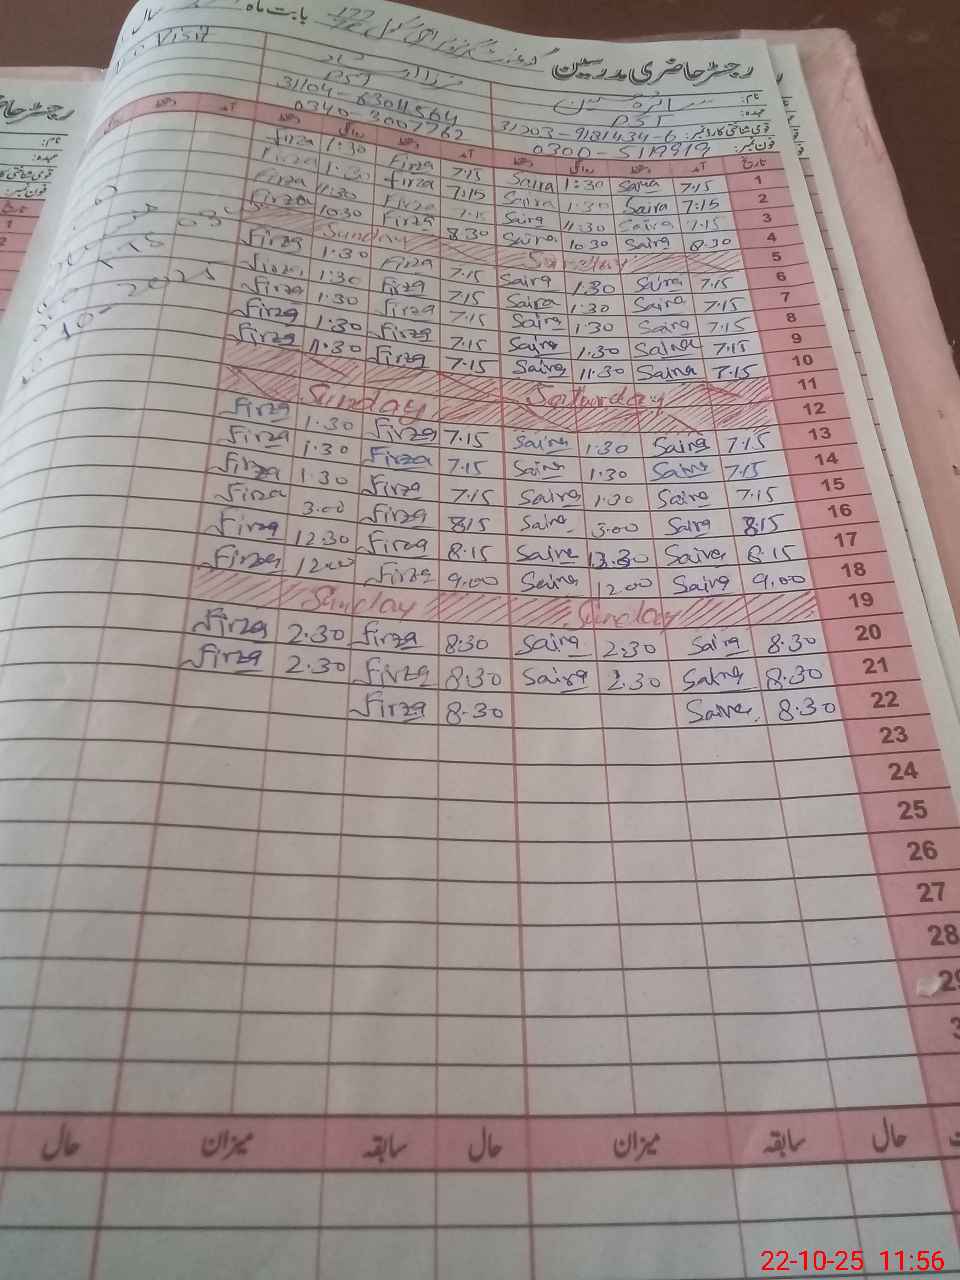 رجسٹر حاضری مدرسین گورنمنٹ گرلز پرائمری سکول 177 بابت ماہ سال
Visit
نام: سائرہ حسین
عہدہ: PST PST
قومی شناختی کارڈ نمبر: 31203-9181434-6 31104-8304564
فون نمبر: 0300-5119919 0340-3007762
تاریخ آمد دستخط روانگی دستخط آمد دستخط روانگی دستخط آمد دستخط
1 7.15 Saira 1:30 Saira 7.15 Firza 1:30 Firza
2 7:15 Saira 1:30 Saira 7:15 Firza 1:30 Firza
3 7.15 Saira 11:30 Saira 7.15 Firza 11:30 Firza
4 8.30 Saira 10.30 Saira 8.30 Firza 10:30 Firza
5 Sunday Sunday
6 7.15 Saira 1.30 Saira 7.15 Firza 1:30 Firza
7 7.15 Saira 1:30 Saira 7.15 Firza 1:30 Firza
8 7.15 Saira 1:30 Saira 7.15 Firza 1:30 Firza
9 7.15 Saira 1:30 Saira 7.15 Firza 1:30 Firza
10 7.15 Saira 11.30 Saira 7.15 Firza 11.30 Firza
11 Saturday
12 Sunday
13 7.15 Saira 1.30 Saira 7.15 Firza 1.30 Firza
14 7.15 Saira 1.30 Saira 7.15 Firza 1.30 Firza
15 7.15 Saira 1.30 Saira 7.15 Firza 1.30 Firza
16 8.15 Saira 3.00 Saira 8.15 Firza 3.00 Firza
17 8.15 Saira 12.30 Saira 8.15 Firza 12.30 Firza
18 9.00 Saira 12.00 Saira 9.00 Firza 12.00 Firza
19 Sunday Sunday
20 8.30 Saira 2.30 Saira 8.30 Firza 2.30 Firza
21 8.30 Saira 2.30 Saira 8.30 Firza 2.30 Firza
22 8.30 Saira 8.30 Firza
23
24
25
26
27
28
29
حال سابقہ میزان حال سابقہ میزان حال
22-10-25 11:56